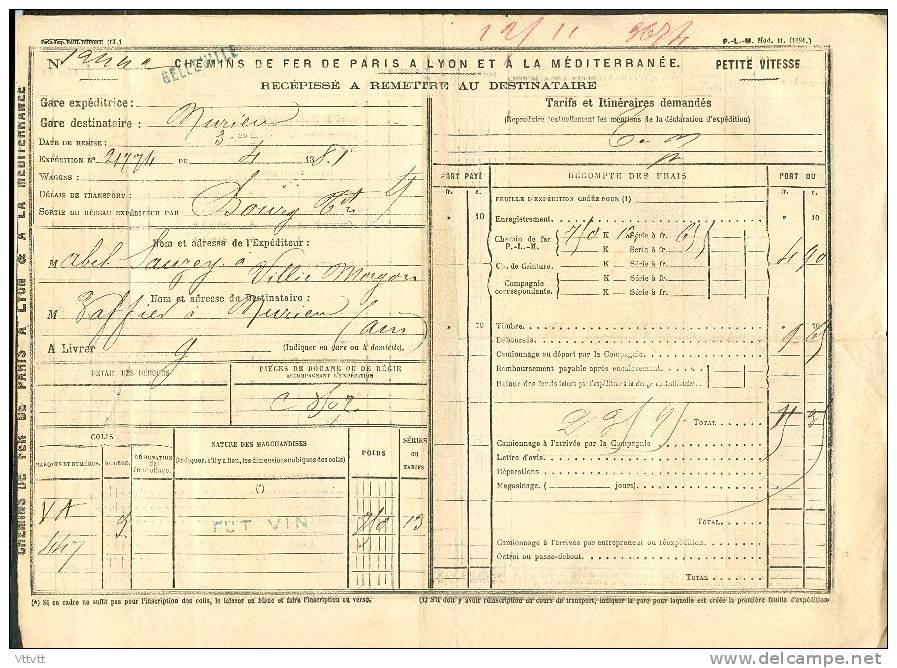 12/11 9674
P.-L.-M. Mod. 11. (1881.)
BELLEVILLE
N°
CHEMINS DE FER DE PARIS A LYON ET A LA MÉDITERRANÉE.
PETITE VITESSE
RÉCÉPISSÉ A REMETTRE AU DESTINATAIRE
CHEMINS DE FER DE PARIS A LYON & A LA MÉDITERRANÉE
Gare expéditrice :
Gare destinataire :
DATE DE REMISE :
EXPÉDITION N° 21774 DU 4
WAGONS :
DÉLAIS DE TRANSPORT :
SORTIE DU RÉSEAU EXPÉDITEUR PAR Bourg
Nom et adresse de l'Expéditeur :
M Abel Sauzey a
Villié Morgon
Nom et adresse du Destinataire :
M
(ain)
A Livrer g (Indiquer en gare ou à domicile).
DÉTAIL DES DÉBOURS
PIÈCES DE DOUANE OU DE RÉGIE
ACCOMPAGNANT L'EXPÉDITION
COLIS
MARQUES ET NUMÉROS.
NOMBRE.
DÉSIGNATION de l'emballage.
NATURE DES MARCHANDISES
(Indiquer, s'il y a lieu, les dimensions cubiques des colis)
POIDS
SÉRIES OU TARIFS
(*)
VA
447
FÛT VIN
13
(*) Si ce cadre ne suffit pas pour l'inscription des colis, le laisser en blanc et faire l'inscription au verso.
Tarifs et Itinéraires demandés
(Reproduire textuellement les mentions de la déclaration d'expédition)
PORT PAYÉ
DÉCOMPTE DES FRAIS
PORT DU
fr. c.
fr. c.
FEUILLE D'EXPÉDITION CRÉÉE POUR (1)
" 10
Enregistrement.
" 10
Chemin de fer P.-L.-M.
K Série à fr.
K Série à fr.
4 90
Ch. de Ceinture.
K Série à fr.
Compagnie correspondante.
K Série à fr.
K Série à fr.
" 70
Timbre.
" 70
Déboursés.
Camionnage au départ par la Compagnie.
Remboursement payable après encaissement.
Retour des fonds laissés par l'expéditeur à la charge du destinataire.
TOTAL.
Camionnage à l'arrivée par la Compagnie
Lettre d'avis.
Réparations.
Magasinage. ( jours).
TOTAL.
Camionnage à l'arrivée par entrepreneur ou réexpédition.
Octroi ou passe-debout.
TOTAL
(1) S'il doit y avoir réinscription en cours de transport, indiquer la gare pour laquelle est créée la première feuille d'expédition
Vttvtt
delcampe.net